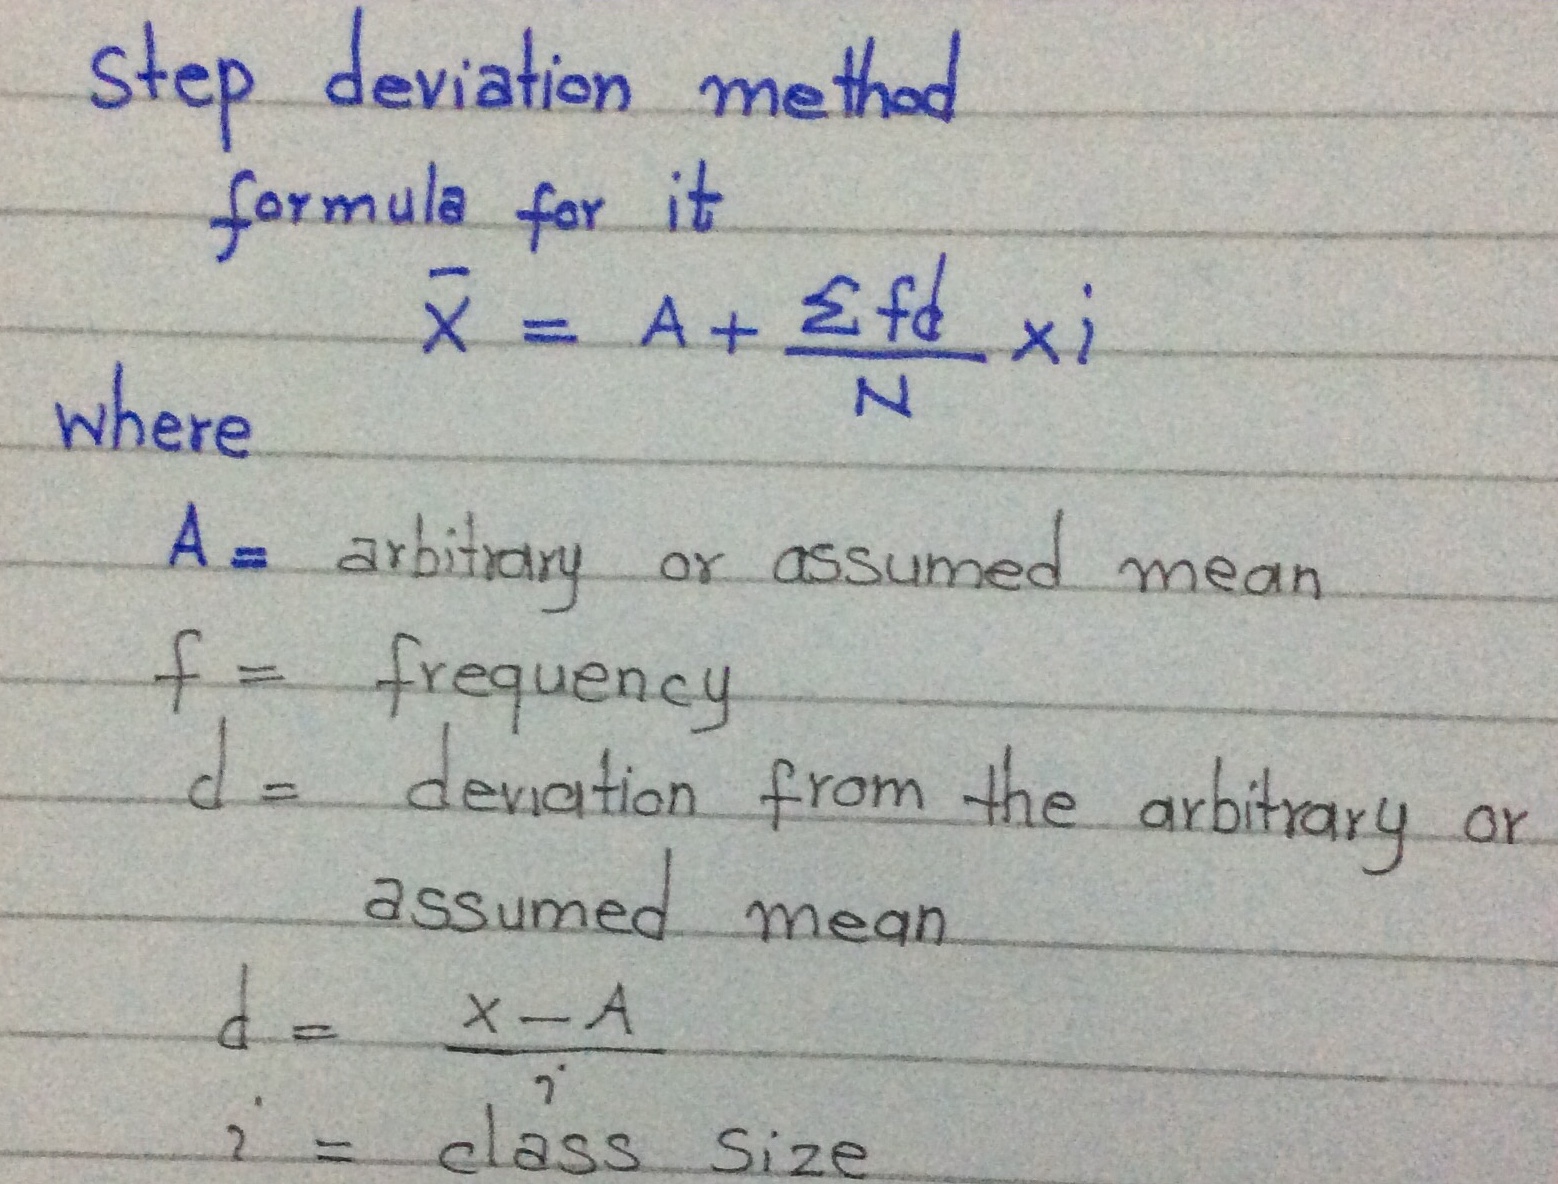 Step deviation method
formula for it
X̄ = A + Σfd/N × i
where
A = arbitrary or assumed mean
f = frequency
d = deviation from the arbitrary or
assumed mean
d = x - A / i
i = class size